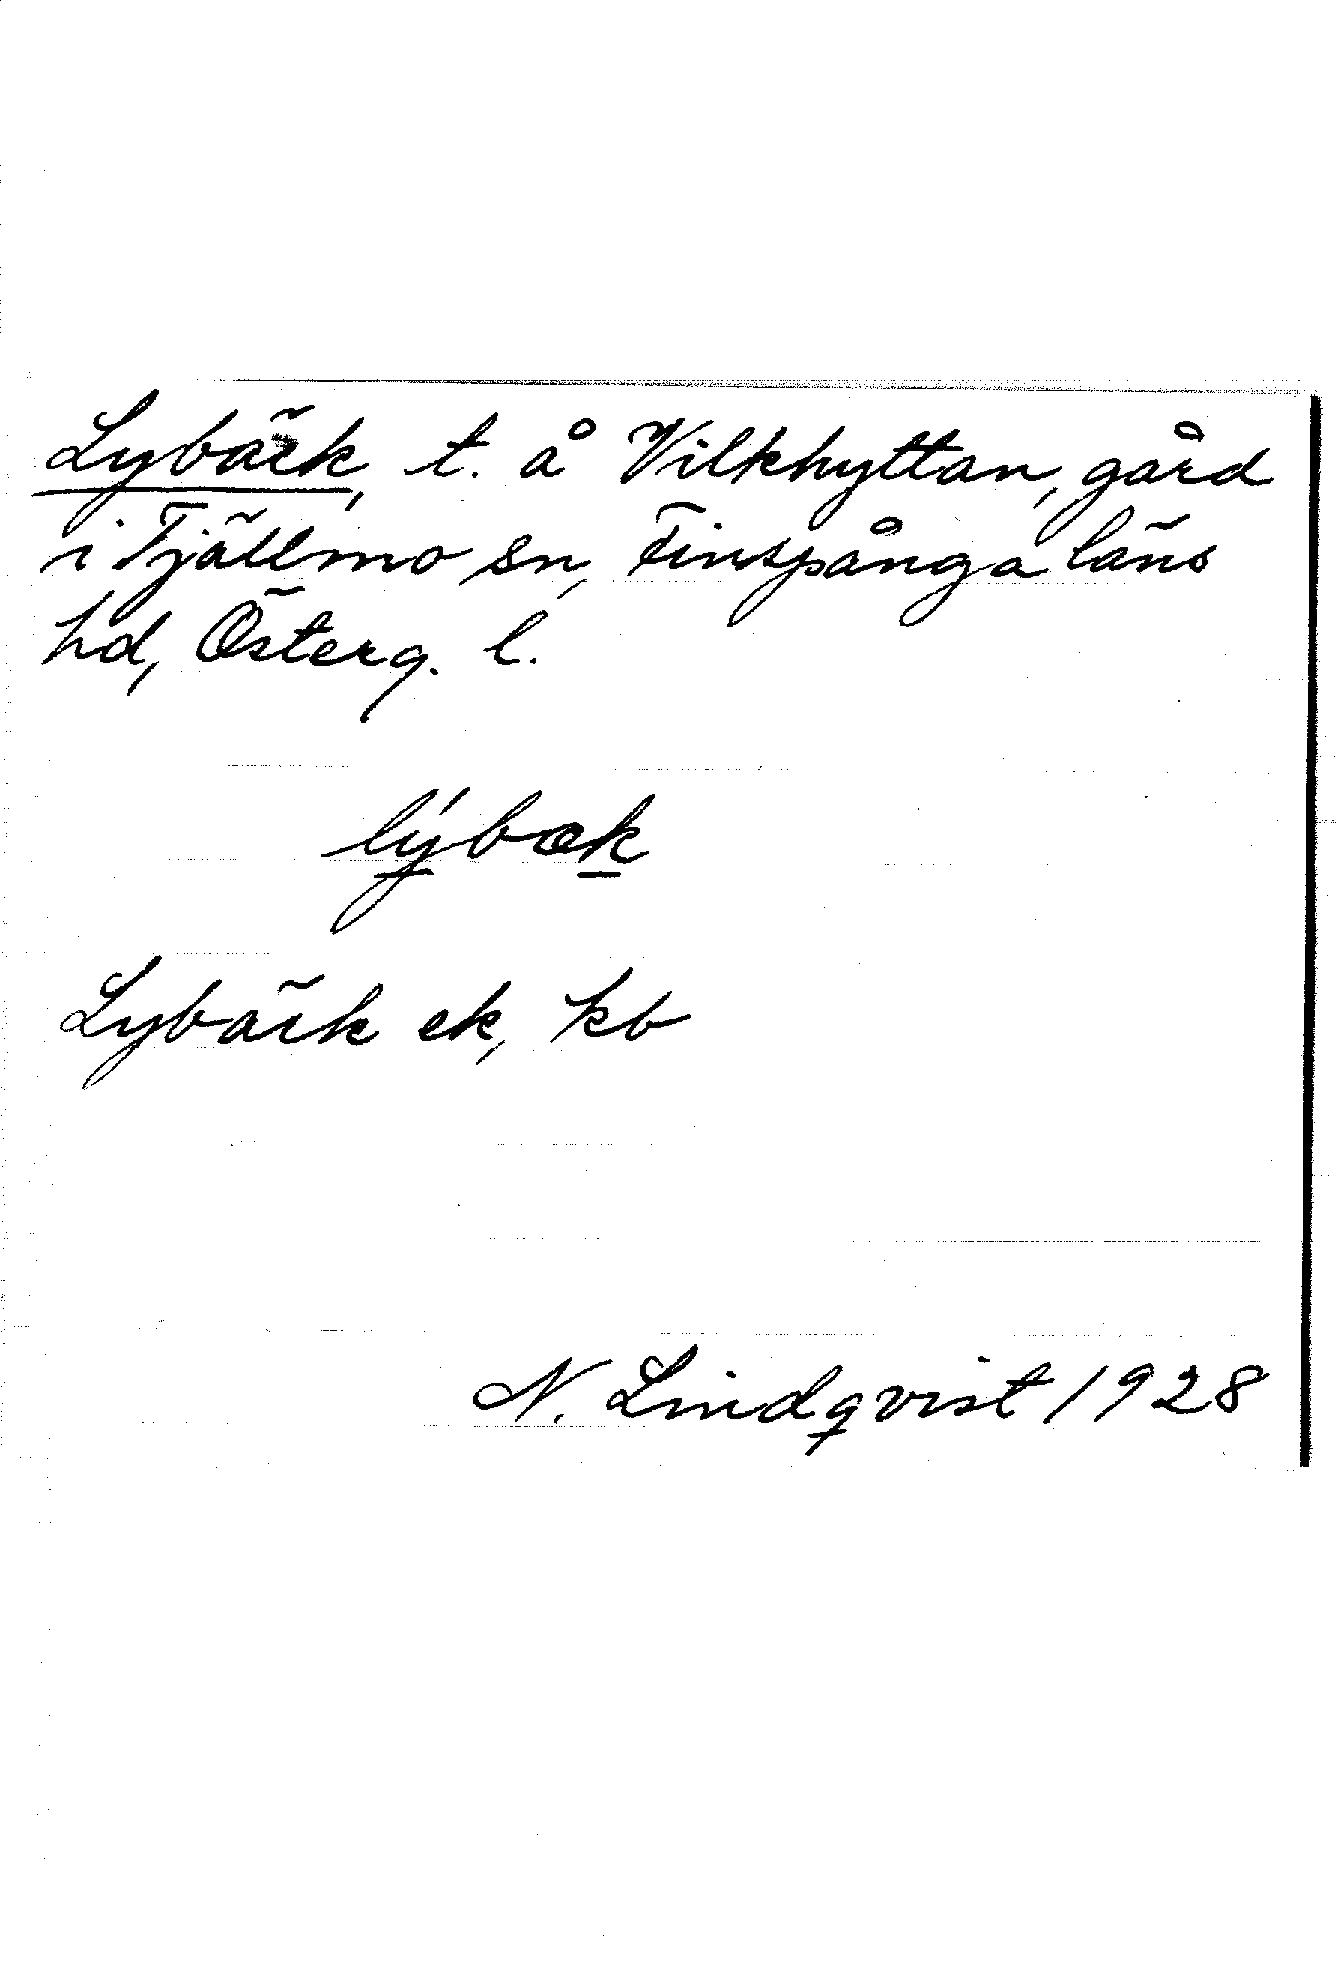 Lybäck, t. å Vilkhyttan, gård
i Tjällmo sn, Finspånga läns
hd, Österg. l.
lýbæk
Lybäck ek, kb
N. Lindqvist 1928